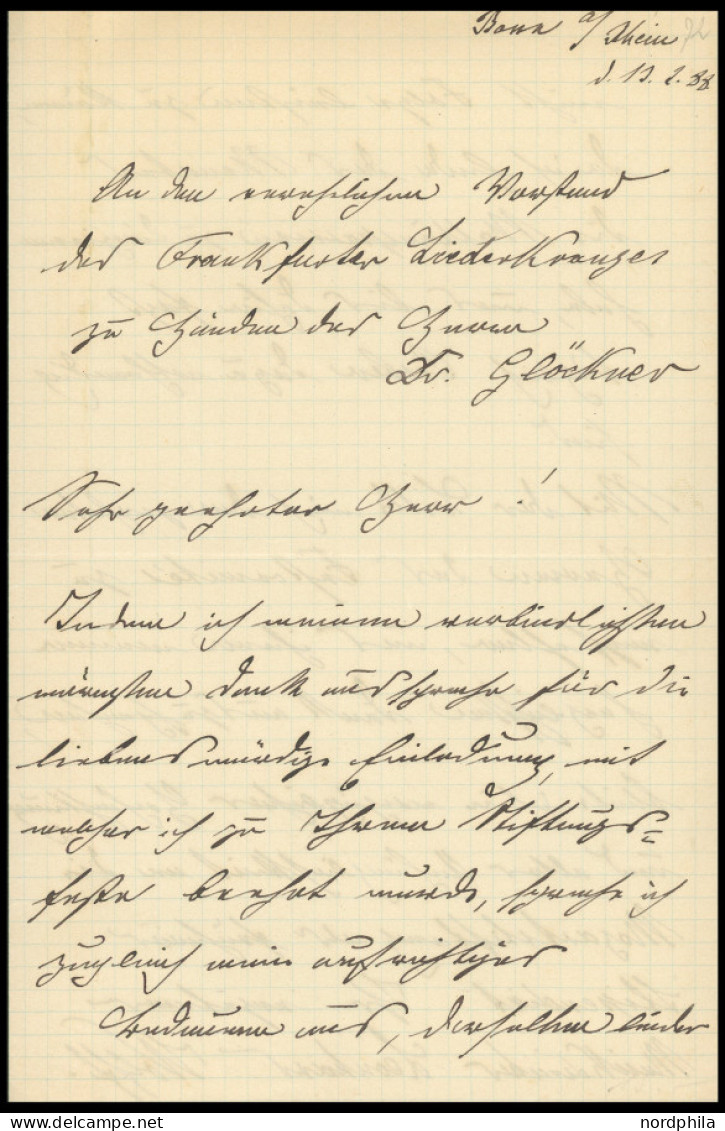 Bonn a/Rhein 72
d. 13. 2. 88
An den verehrlichen Vorstand
des Frankfurter LiederKranzes
zu Händen des Herrn
Dr. Glöckner
Sehr geehrter Herr !
Indem ich meinen verbindlichsten
wärmsten Dank ausspreche für die
liebenswürdige Einladung, mit
welcher ich zu Ihrem Stiftungs=
feste beehrt wurde, spreche ich
zugleich mein aufrichtiges
Bedauern aus, derselben leider
nordphila